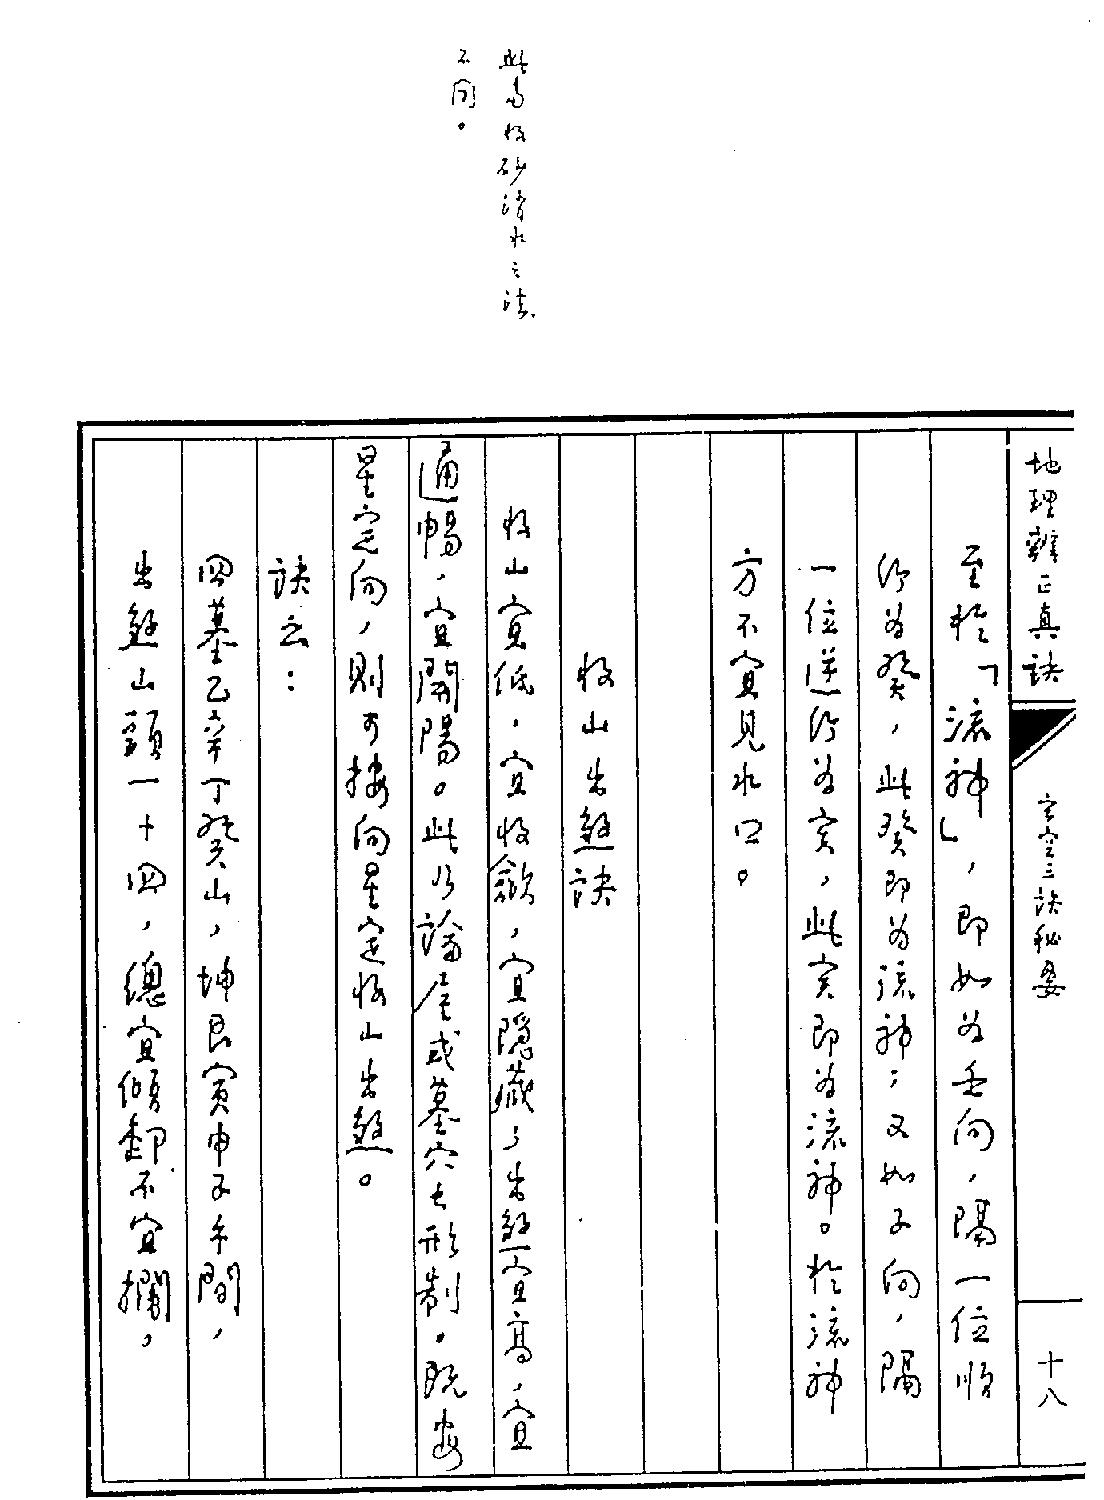 地理辨正真訣
玄空三訣秘要
十八
至於「流神」，即如為壬向，隔一位順
行為癸，此癸即為流神；又如子向，隔
一位逆行為亥，此亥即為流神。於流神
方不宜見水口。
收山出煞訣
收山宜低，宜收斂，宜隱藏；出煞宜高，宜
通暢，宜開陽。此乃論屋或墓穴之形制。既按
星定向，則可按向星定收山出煞。
訣云：
四墓乙辛丁癸山，坤艮寅申子午間，
出煞山頭一十四，總宜傾卸不宜攔，
此為收砂消水之法
不同。